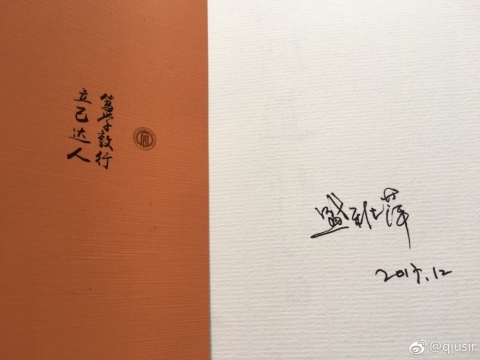 笃学敦行
立己达人
盛 萍
2017.12
@qiusir